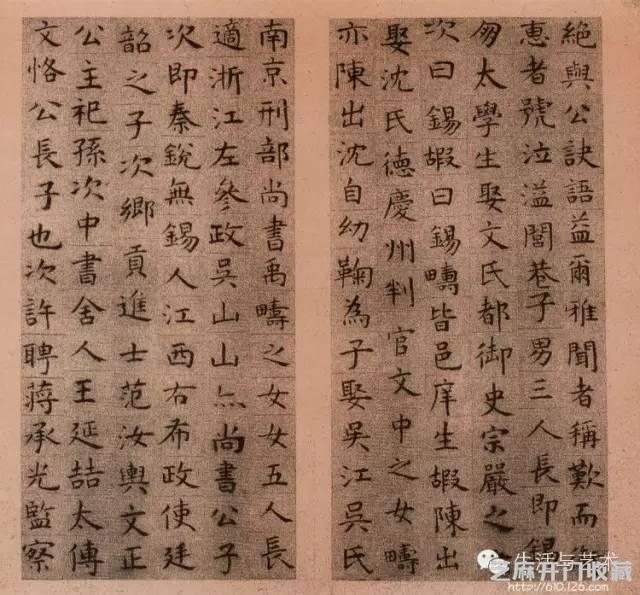 絶與公訣語益爾雅聞者稱歎而
惠者號泣溢閭巷子男三人長即錫
匆太學生娶文氏都御史宗嚴之
次曰錫嘏曰錫疇皆邑庠生嘏陳出
娶沈氏德慶州判官文中之女疇
亦陳出沈自幼鞠為子娶吳江吳氏
南京刑部尚書禹疇之女女五人長
適浙江左參政吳山山亦尚書公子
次即秦銳無錫人江西右布政使廷
韶之子次鄉貢進士范汝輿文正
公主祀孫次中書舍人王延喆太傅
文恪公長子也次許聘蔣承光監察
生活与艺术
芝麻开门收藏
http://610.126.com